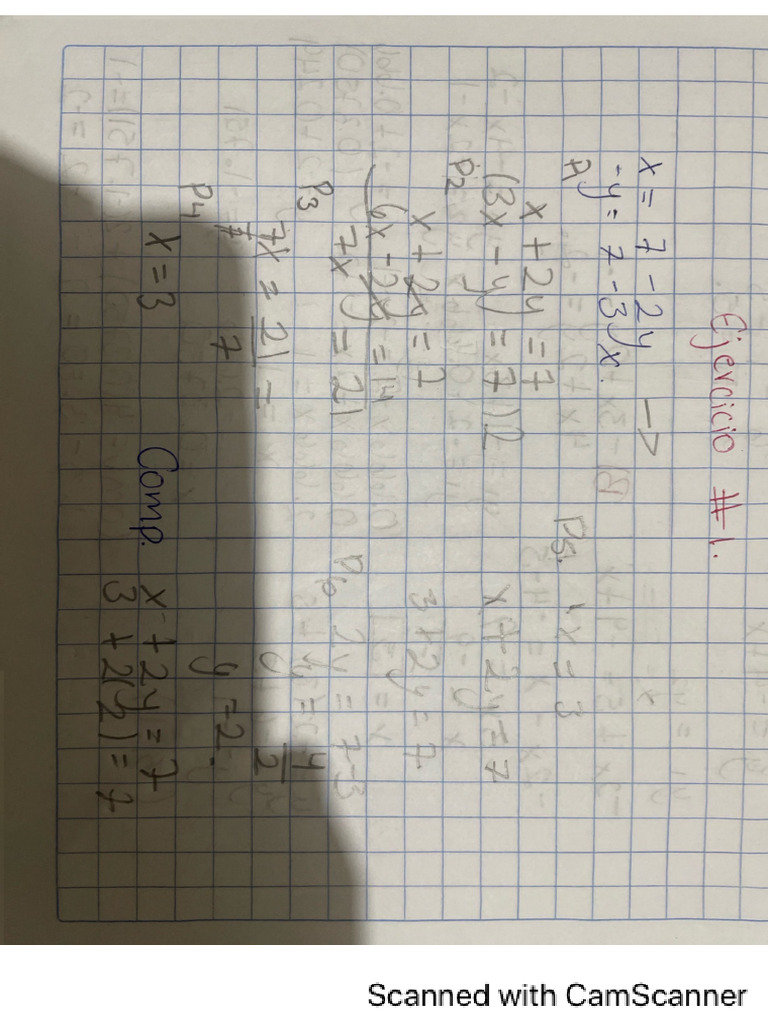 Ejercicio #1.
x = 7 - 2y →
-y = 7 - 3x.
P1
x + 2y = 7
(3x - y = 7)2
P2
x + 2y = 7
6x - 2y = 14
7x = 21
P3
7x = 21 =
7 7
P4
x = 3
P5.
x = 3
x + 2y = 7
3 + 2y = 7
P6
2y = 7-3
y = 4
2
y = 2.
Comp.
x + 2y = 7
3 + 2(2) = 7
Scanned with CamScanner